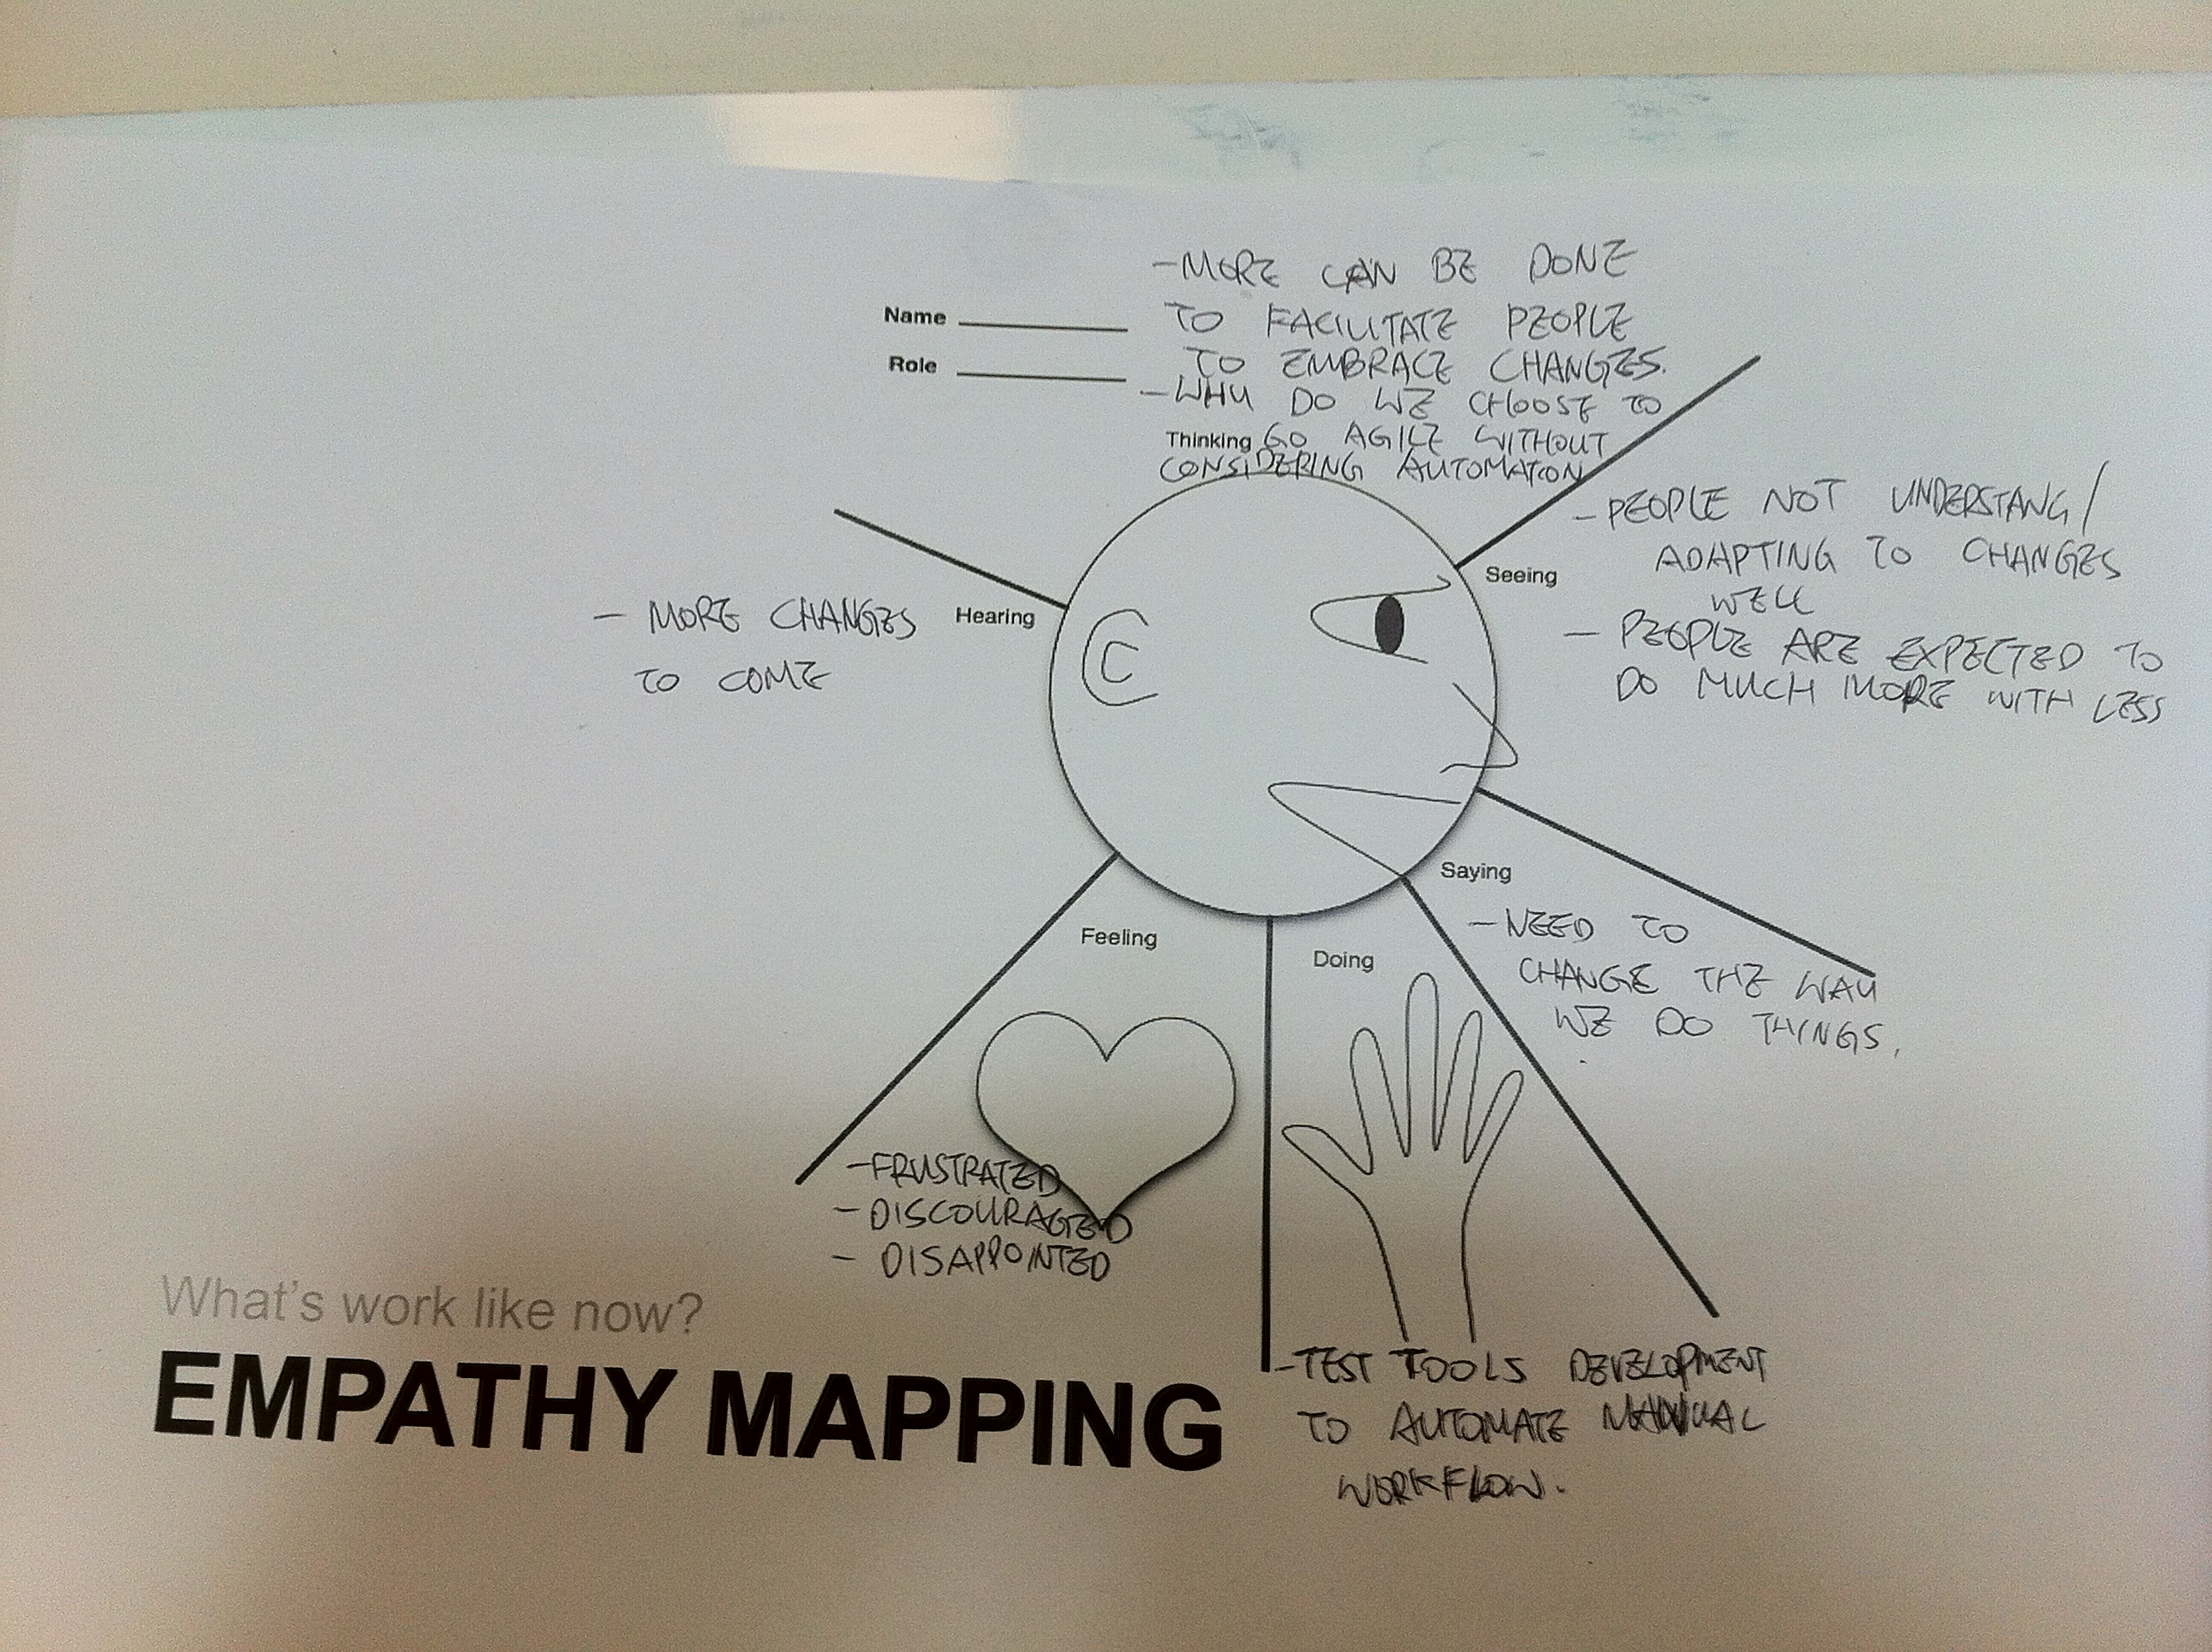 - MORE CAN BE DONE
TO FACILITATE PEOPLE
TO EMBRACE CHANGES.
- WHY DO WE CHOOSE TO
GO AGILE WITHOUT
CONSIDERING AUTOMATON
Name
Role
Thinking
Seeing
- PEOPLE NOT UNDERSTANG/
ADAPTING TO CHANGES
WELL
- PEOPLE ARE EXPECTED TO
DO MUCH MORE WITH LESS
Hearing
- MORE CHANGES
TO COME
Saying
- NEED TO
CHANGE THE WAY
WE DO THINGS.
Feeling
- FRUSTRATED
- DISCOURAGED
- DISAPPOINTED
Doing
- TEST TOOLS DEVELOPMENT
TO AUTOMATE MANUAL
WORKFLOW.
What's work like now?
EMPATHY MAPPING